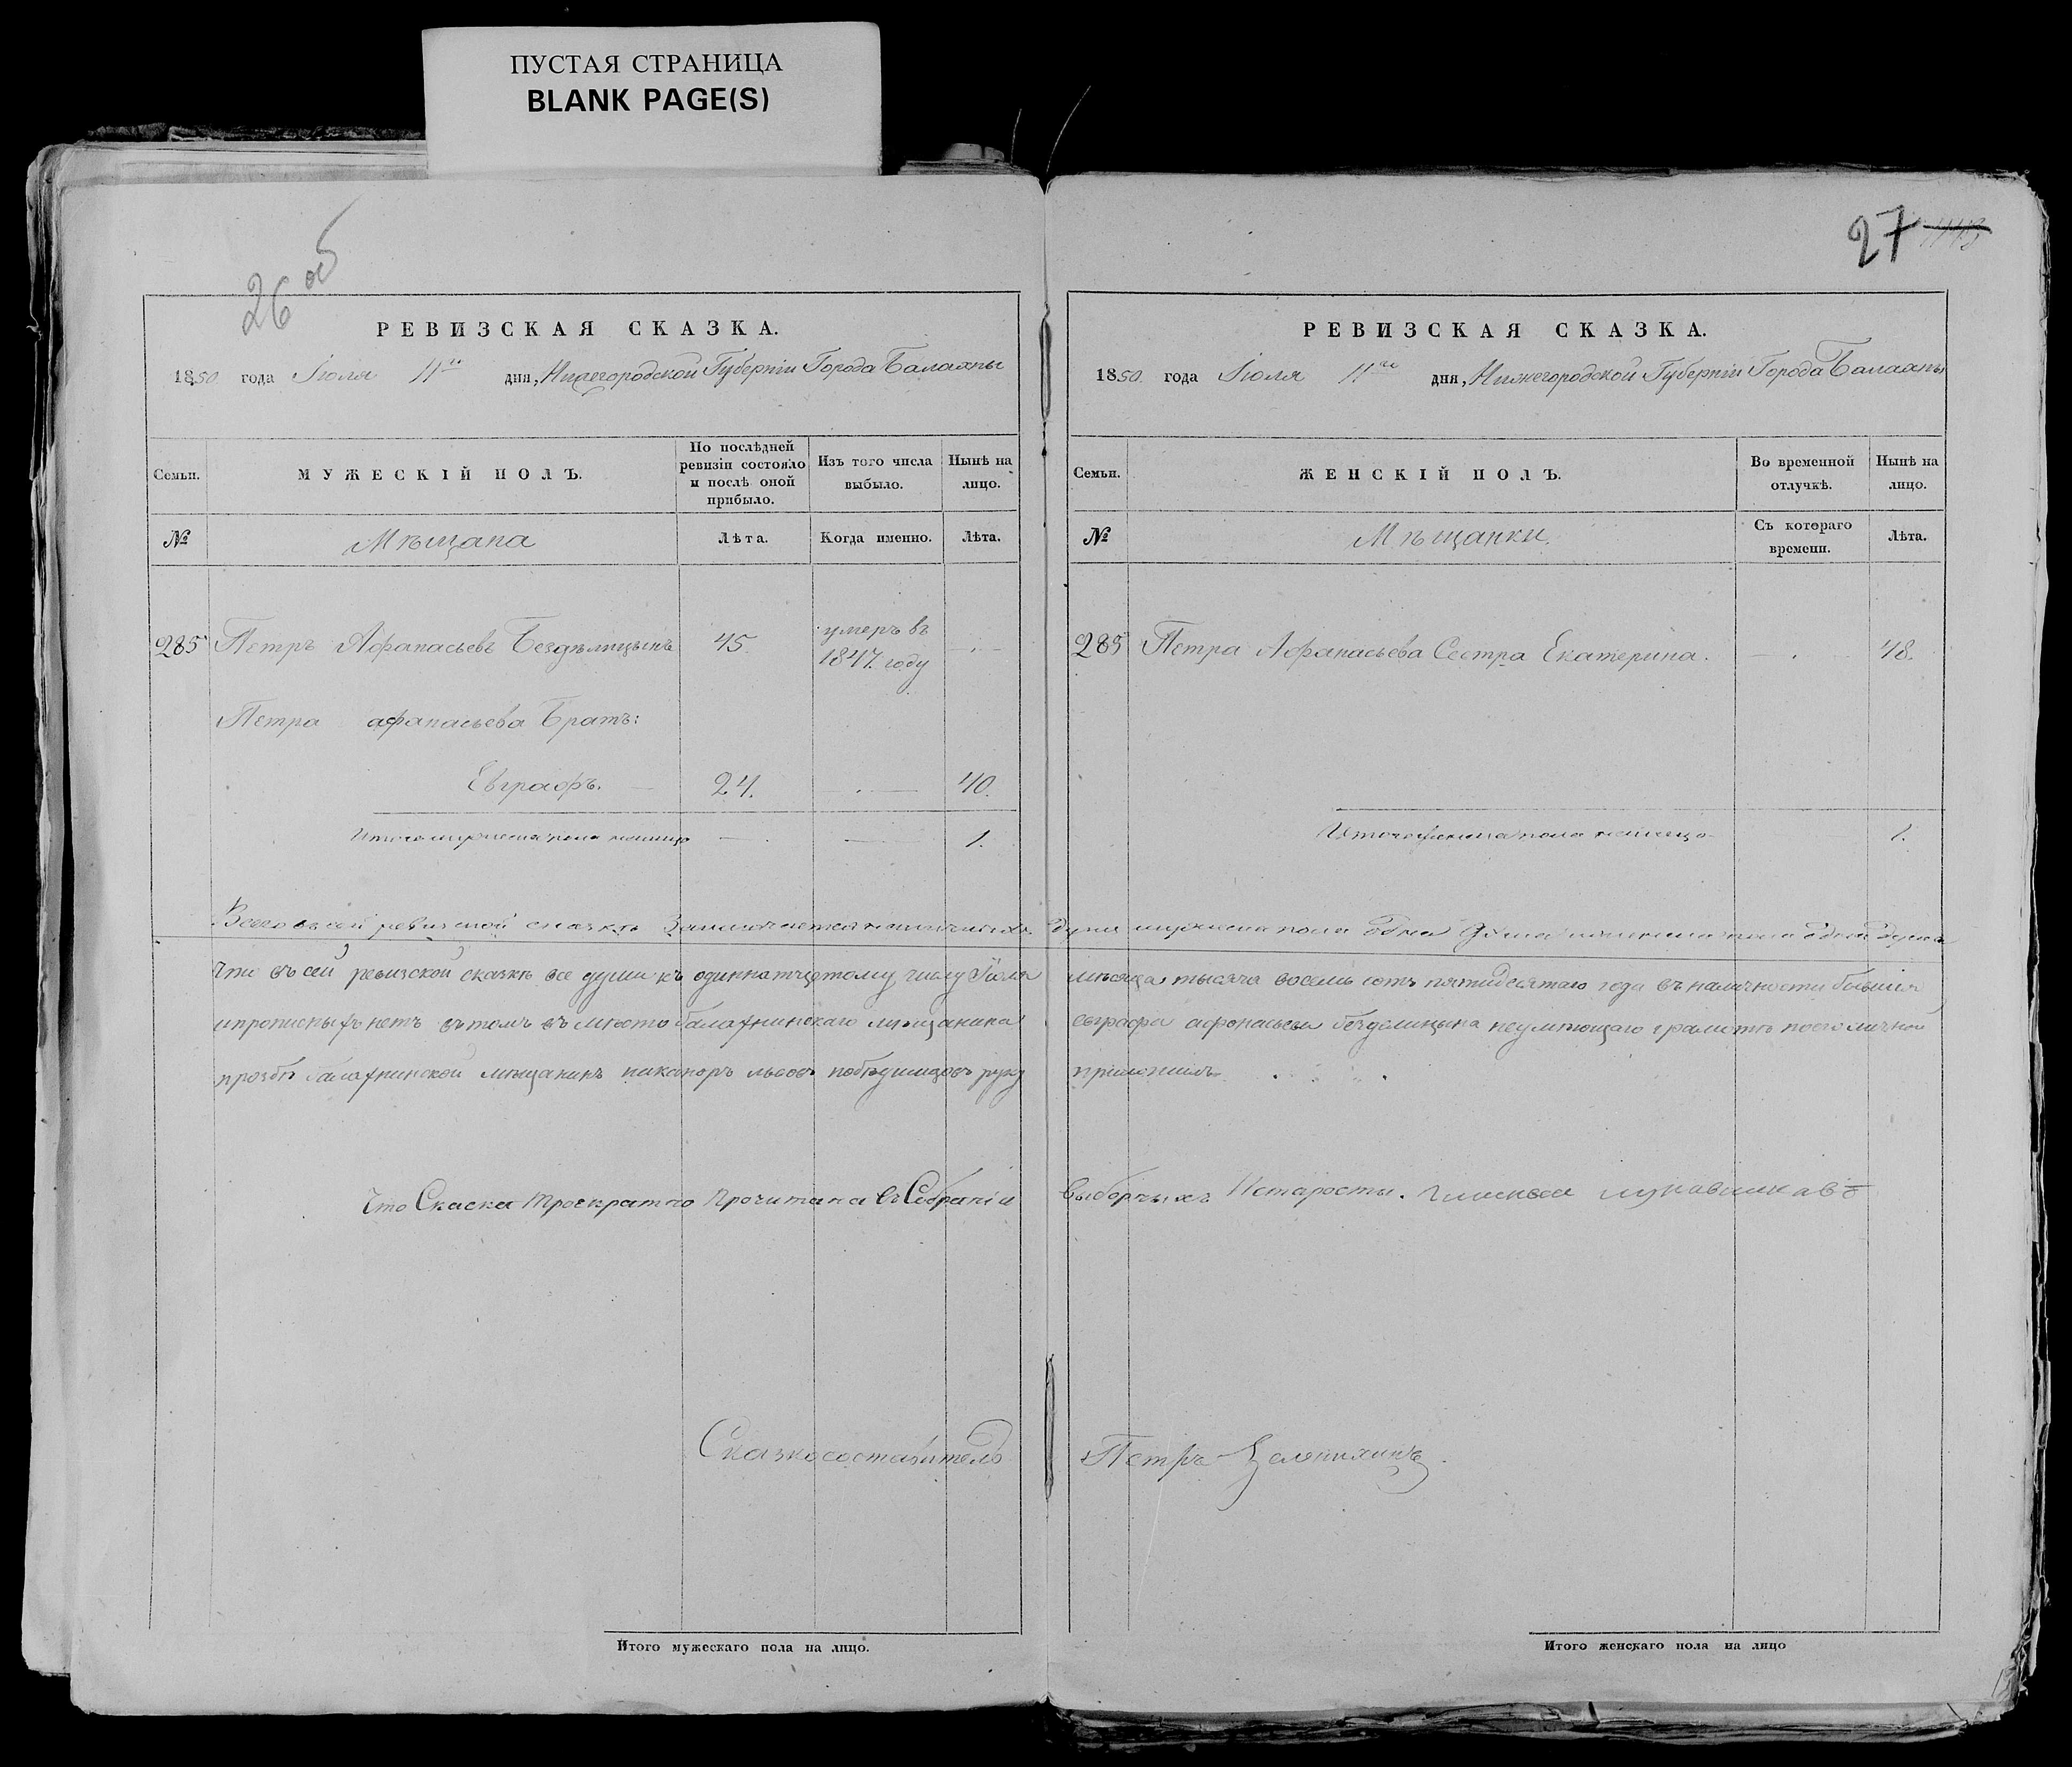 ПУСТАЯ СТРАНИЦА
BLANK PAGE(S)
26 об
РЕВИЗСКАЯ СКАЗКА.
1850 года Іюля 11го дня, Нижегородской Губерніи Города Балахны
Семьи.
МУЖЕСКІЙ ПОЛЪ.
По послѣдней
ревизіи состояло
и послѣ оной
прибыло.
Изъ того числа
выбыло.
Нынѣ на
лицо.
№
Мѣщана
Лѣта.
Когда именно.
Лѣта.
285 Петръ Афанасьевъ Бездѣлицынъ 45. умеръ въ
1847. году
Петра афанасьева Братъ:
Евграфъ. 24. 40.
Итого мужеска пола налицо 1.
Всего въ сей ревизской сказкѣ Заключается наличныхъ
что въ сей ревизской сказкѣ все души къ одиннатцетому числу Іюля
ипрописныхъ нетъ втомъ въ место балахнинскаго мѣщанина
прозбѣ балахнинской мѣщанинъ никаноръ львовъ руку
Что Скаска троекратно прочитана въ Собраніи
Сказкосоставитель
Итого мужескаго пола на лицо.
27
РЕВИЗСКАЯ СКАЗКА.
1850. года Іюля 11го дня, Нижегородской Губерніи Города Балахны
Семьи.
ЖЕНСКІЙ ПОЛЪ.
Во временной
отлучкѣ.
Нынѣ на
лицо.
№
Мѣщанки.
Съ котораго
времени.
Лѣта.
285 Петра Афанасьева Сестра Екатерина. 48.
Итого женска пола налицо 1.
душъ мужеска пола Одна Душа женска пола Одна душа
мѣсяца тысяча восемь сотъ пятидесятаго года въ наличности
евграфа афонасьева безделицына неумеющаго грамотѣ поего личной
приложилъ
выборныхъ Истаросты.
Петръ
Итого женскаго пола на лицо